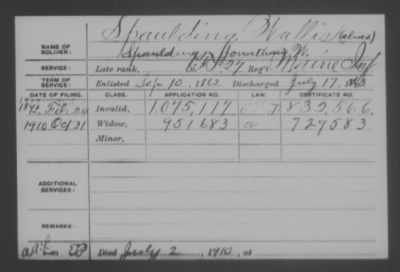 Spaulding, Wallis (alias)
NAME OF SOLDIER: Spaulding, Jonathan W.
SERVICE: Late rank, Co. 27 Reg't Maine Inf
TERM OF SERVICE: Enlisted Sep 10, 1862 Discharged July 17, 1863
DATE OF FILING. CLASS. APPLICATION NO. LAW CERTIFICATE NO.
Invalid, 1075,117 832,566
1910, Oct 21 Widow, 951683 a 729583
Minor,
ADDITIONAL SERVICES:
REMARKS:
Died July 2, 1910, at